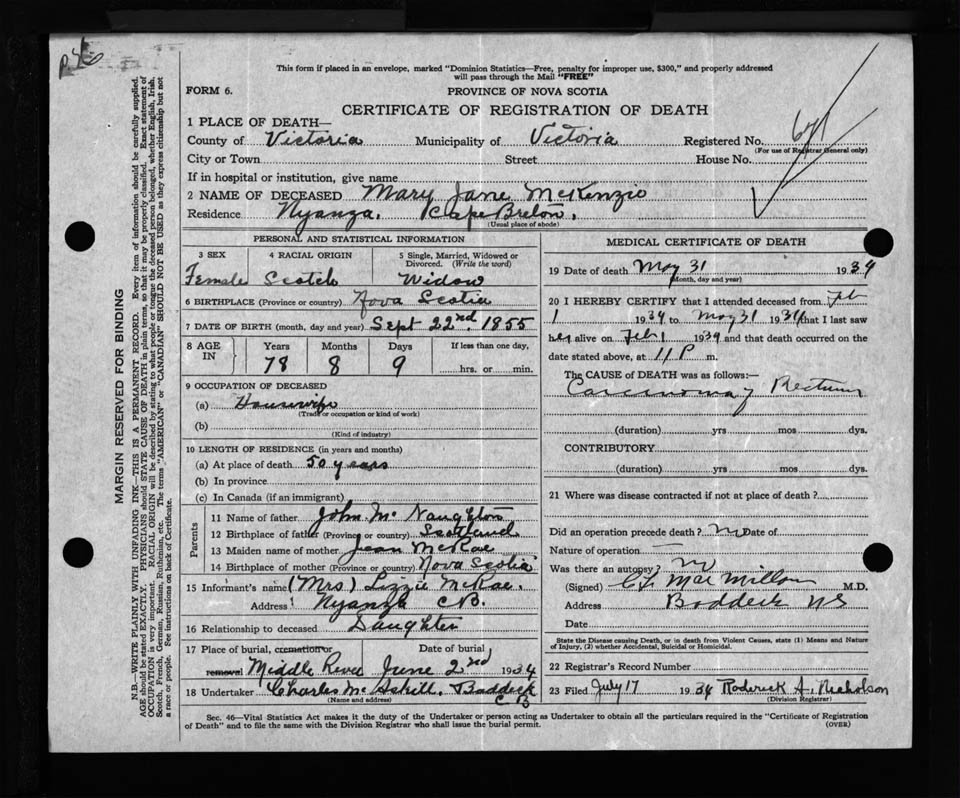 This form if placed in an envelope, marked "Dominion Statistics—Free, penalty for improper use, $300," and properly addressed
will pass through the Mail "FREE"
FORM 6.
PROVINCE OF NOVA SCOTIA
CERTIFICATE OF REGISTRATION OF DEATH
1 PLACE OF DEATH—
County of Victoria Municipality of Victoria Registered No.
(For use of Registrar General only)
City or Town Street House No.
If in hospital or institution, give name
2 NAME OF DECEASED Mary Jane McKenzie
Residence Nyanza. Cape Breton.
(Usual place of abode)
PERSONAL AND STATISTICAL INFORMATION
3 SEX 4 RACIAL ORIGIN 5 Single, Married, Widowed or
Divorced. (Write the word)
Female Scotch Widow
6 BIRTHPLACE (Province or country) Nova Scotia
7 DATE OF BIRTH (month, day and year) Sept 22nd. 1855
8 AGE IN Years Months Days If less than one day,
78 8 9 hrs. or min.
9 OCCUPATION OF DECEASED
(a) Housewife
(Trade or occupation or kind of work)
(b)
(Kind of industry)
10 LENGTH OF RESIDENCE (in years and months)
(a) At place of death 50 years
(b) In province
(c) In Canada (if an immigrant)
Parents
11 Name of father John McNaughton
12 Birthplace of father (Province or country) Scotland
13 Maiden name of mother Jean McRae
14 Birthplace of mother (Province or country) Nova Scotia
15 Informant's name (Mrs) Lizzie McRae.
Address Nyanza C.B.
16 Relationship to deceased Daughter
17 Place of burial, cremation or Date of burial,
removal Middle River June 2nd 1934
18 Undertaker Charles McAskill. Baddeck
C B
(Name and address)
MEDICAL CERTIFICATE OF DEATH
19 Date of death May 31 1934
(Month, day and year)
20 I HEREBY CERTIFY that I attended deceased from Feb
1 1934 to May 31 1934 that I last saw
her alive on Feb 1 1934 and that death occurred on the
date stated above, at 11 P m.
The CAUSE OF DEATH was as follows:—
Carcinoma of Rectum
(duration) yrs mos dys.
CONTRIBUTORY
(duration) yrs mos dys.
21 Where was disease contracted if not at place of death?
Did an operation precede death? no Date of
Nature of operation
Was there an autopsy? no
(Signed) C L MacMillan M.D.
Address Baddeck NS
Date
State the Disease causing Death, or in death from Violent Causes, state (1) Means and Nature
of Injury, (2) whether Accidental, Suicidal or Homicidal.
22 Registrar's Record Number
23 Filed July 17 1934 Roderick A. Nicholson
(Division Registrar)
Sec. 46—Vital Statistics Act makes it the duty of the Undertaker or person acting as Undertaker to obtain all the particulars required in the "Certificate of Registration
of Death" and to file the same with the Division Registrar who shall issue the burial permit.
(OVER)
MARGIN RESERVED FOR BINDING
N.B.—WRITE PLAINLY WITH UNFADING INK—THIS IS A PERMANENT RECORD. Every item of information should be carefully supplied.
AGE should be stated EXACTLY. PHYSICIANS should STATE CAUSE OF DEATH in plain terms, so that it may be properly classified. Exact statement of
OCCUPATION is very important. RACIAL ORIGIN will be described by stating to what people or tongue the deceased person belonged, whether English, Irish,
Scotch, French, German, Russian, Ruthenian, etc. The terms "AMERICAN" or "CANADIAN" SHOULD NOT BE USED as they express citizenship but not
a race or people. See instructions on back of Certificate.